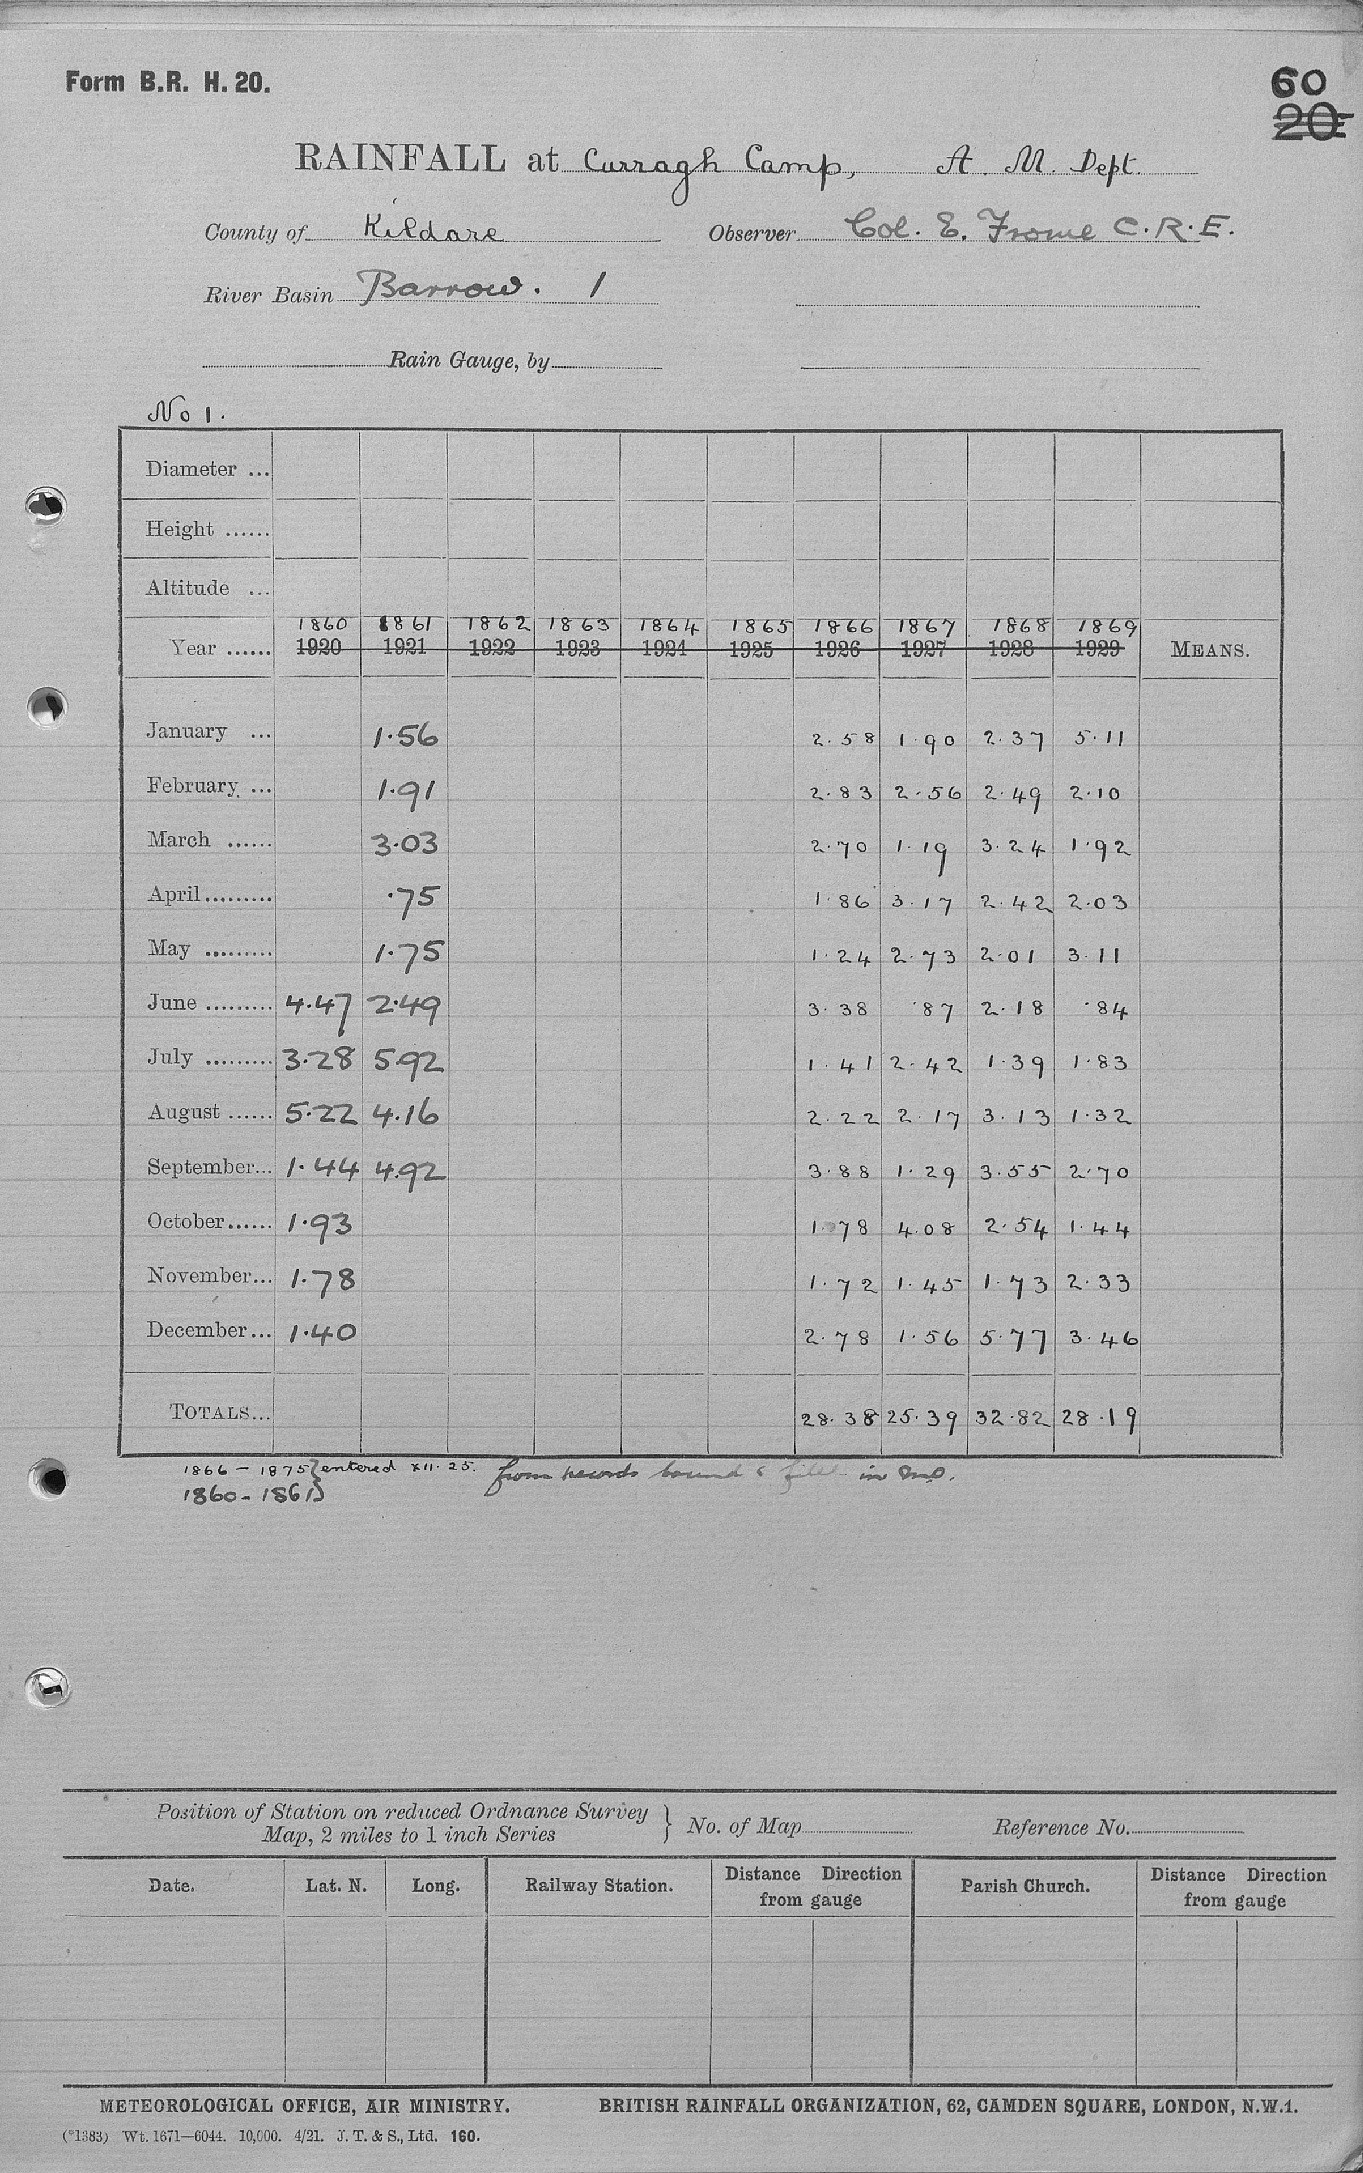 Form B.R. H. 20.
60
20
RAINFALL at Curragh Camp, A. M. Dept.
County of Kildare Observer Col. E. Frome C.R.E.
River Basin Barrow. 1
Rain Gauge, by
No 1.
Diameter ...
Height ......
Altitude ...
1860 1861 1862 1863 1864 1865 1866 1867 1868 1869
Year ...... 1920 1921 1922 1923 1924 1925 1926 1927 1928 1929 MEANS.
January ... 1.56 2.58 1.90 2.37 5.11
February ... 1.91 2.83 2.56 2.49 2.10
March ...... 3.03 2.70 1.19 3.24 1.92
April ......... .75 1.86 3.17 2.42 2.03
May ......... 1.75 1.24 2.73 2.01 3.11
June ......... 4.47 2.49 3.38 .87 2.18 .84
July ......... 3.28 5.92 1.41 2.42 1.39 1.83
August ...... 5.22 4.16 2.22 2.17 3.13 1.32
September... 1.44 4.92 3.88 1.29 3.55 2.70
October...... 1.93 1.78 4.08 2.54 1.44
November... 1.78 1.72 1.45 1.73 2.33
December... 1.40 2.78 1.56 5.77 3.46
TOTALS... 28.38 25.39 32.82 28.19
1866 - 1875 } entered XII.25. from records bound & filed in
1860 - 1861 }
Position of Station on reduced Ordnance Survey
Map, 2 miles to 1 inch Series } No. of Map Reference No.
Date. Lat. N. Long. Railway Station. Distance Direction Parish Church. Distance Direction
from gauge from gauge
METEOROLOGICAL OFFICE, AIR MINISTRY. BRITISH RAINFALL ORGANIZATION, 62, CAMDEN SQUARE, LONDON, N.W.1.
(*1383) Wt. 1671—6044. 10,000. 4/21. J. T. & S., Ltd. 160.